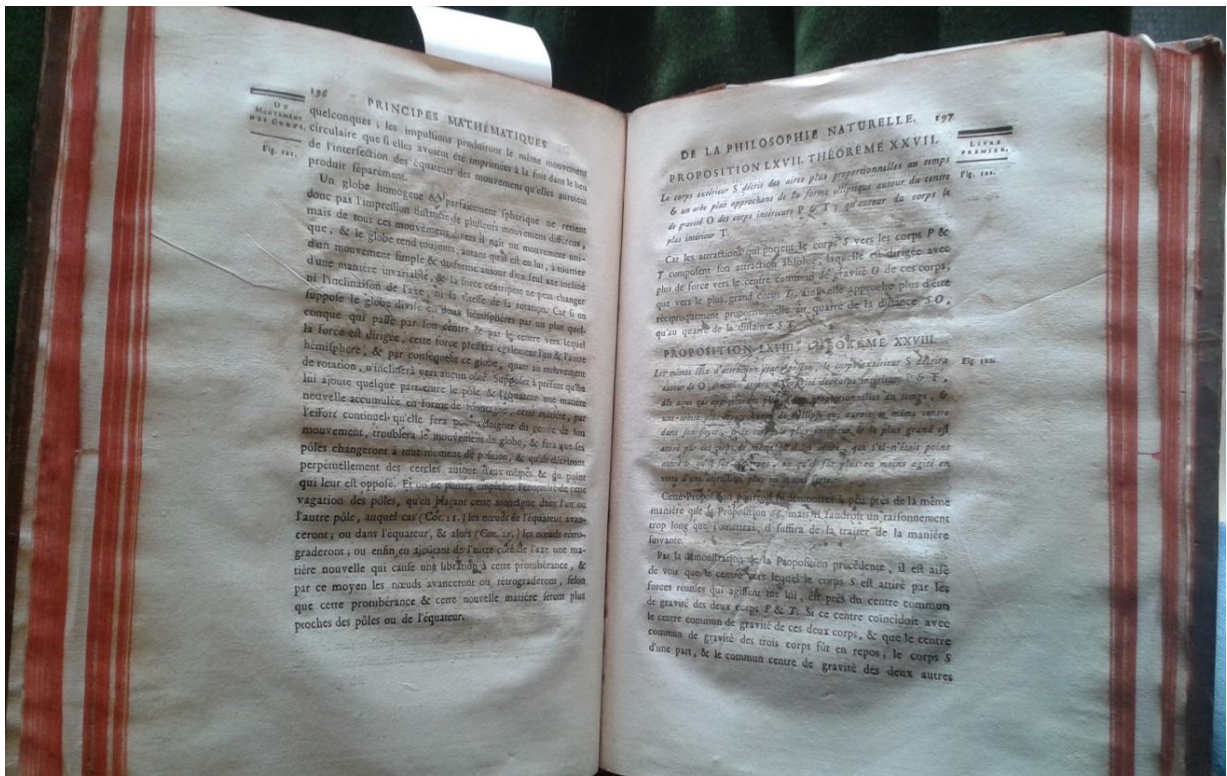 196
PRINCIPES MATHÉMATIQUES
DU
MOUVEMENT
DES CORPS.
quelconques, les impulsions produiront le même mouvement
circulaire que si elles avoient été imprimées à la fois dans le lieu
de l'intersection des équateurs des mouvemens qu'elles auroient
produit séparément.
Un globe homogene & parfaitement sphérique ne retient
donc pas l'impression distincte de plusieurs mouvemens différens,
mais de tous ces mouvemens divers il naît un mouvement uni-
que, & le globe tend toujours, autant qu'il est en lui, à tourner
d'un mouvement simple & uniforme autour d'un seul axe incliné
d'une manière invariable, & la force centripete ne peut changer
ni l'inclinaison de l'axe, ni la vîtesse de la rotation. Car si on
suppose le globe divisé en deux hémisphères par un plan quel-
conque qui passe par son centre & par le centre vers lequel
la force est dirigée, cette force pressera également l'un & l'autre
hémisphere, & par conséquent ce globe, quant au mouvement
de rotation, n'inclinera vers aucun côté. Supposez à présent qu'on
lui ajoute quelque part entre le pôle & l'équateur une matière
nouvelle accumulée en forme de montagne, cette matière, par
l'effort continuel qu'elle fera pour s'éloigner du centre de son
mouvement, troublera le mouvement du globe, & fera que ses
pôles changeront à tout moment de position, & qu'ils décriront
perpétuellement des cercles autour d'eux-mêmes & du point
qui leur est opposé. Et on ne pourra empêcher l'énormité de cette
vagation des pôles, qu'en plaçant cette montagne dans l'un ou
l'autre pôle, auquel cas (Cor. 21.) les nœuds de l'équateur avan-
ceront; ou dans l'équateur, & alors (Cor. 21.) les nœuds rétro-
graderont; ou enfin en ajoûtant de l'autre côté de l'axe une ma-
tière nouvelle qui cause une libration à cette protubérance, &
par ce moyen les nœuds avanceront ou rétrograderont, selon
que cette protubérance & cette nouvelle matière seront plus
proches des pôles ou de l'équateur.
DE LA PHILOSOPHIE NATURELLE. 197
LIVRE
PREMIER.
PROPOSITION LXVII. THÉOREME XXVII.
Fig. 122.
Le corps extérieur S décrit des aires plus proportionnelles au temps
& un orbe plus approchant de la forme elliptique autour du centre
de gravité O des corps intérieurs P & T, qu'autour du corps le
plus intérieur T.
Car les attractions qui portent le corps S vers les corps P &
T composent son attraction absolue, laquelle est dirigée avec
plus de force vers le centre commun de gravité O de ces corps,
que vers le plus grand corps T, ainsi elle approche plus d'être
réciproquement proportionnelle au quarré de la distance SO,
qu'au quarré de la distance ST.
PROPOSITION LXVIII. THÉOREME XXVIII.
Les mêmes loix d'attraction étant posées, le corps extérieur S décrira
autour de O, commun centre de gravité des corps intérieurs P & T,
des aires qui approcheront plus proportionnelles au temps, &
dans son foyer, si le corps intérieur & le plus grand est
attiré par ces corps de même qu'il les attire, que s'il n'étoit point
attiré & qu'il fût en repos, ou qu'il fût plus ou moins agité en
Cette Proposition pourroit se démontrer à peu près de la même
manière que la Proposition 66, mais il faudroit un raisonnement
trop long que j'omettrai; il suffira de la traiter de la manière
suivante.
Par la démonstration de la Proposition précédente, il est aisé
de voir que le centre vers lequel le corps S est attiré par les
forces réunies qui agissent sur lui, est près du centre commun
de gravité des deux corps P & T. Si ce centre coincidoit avec
le centre commun de gravité de ces deux corps, & que le centre
commun de gravité des trois corps fût en repos, le corps S
d'une part, & le commun centre de gravité des deux autres